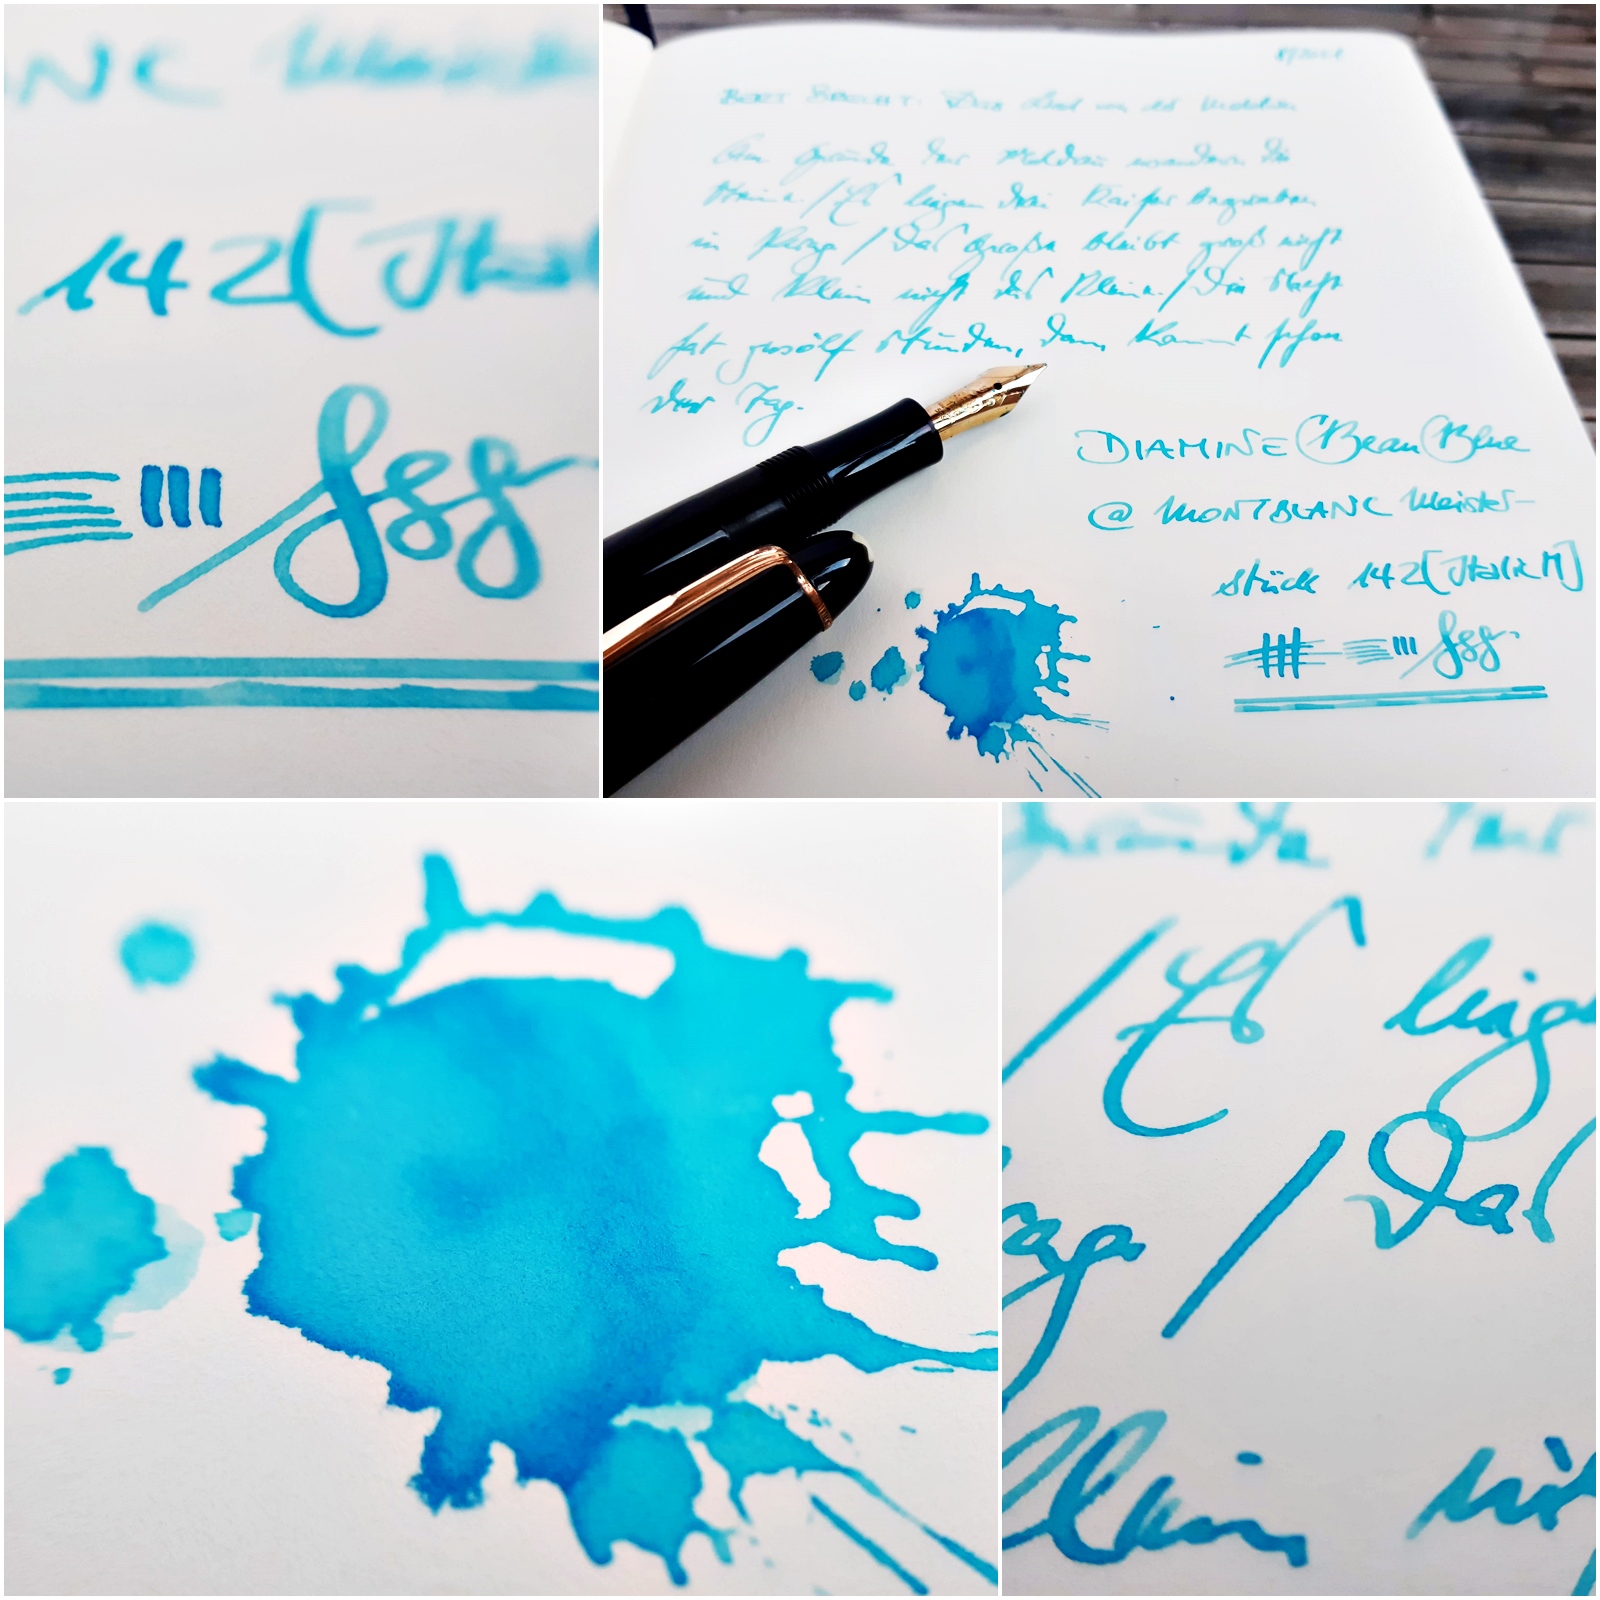 NC
142[Ital
BERT BRECHT: Das Lied von der Moldau
Am Grunde der Moldau wandern die
Steine./Es liegen drei Kaiser begraben
in Prag/Das Große bleibt groß nicht
und klein nicht das Kleine./Die Nacht
hat zwölf Stunden, dann kommt schon
der Tag.
DIAMINE Beau Blue
@ MONTBLANC Meister-
stück 142[Italic M]
runde der
/Es liege
rag/Das
klein nic